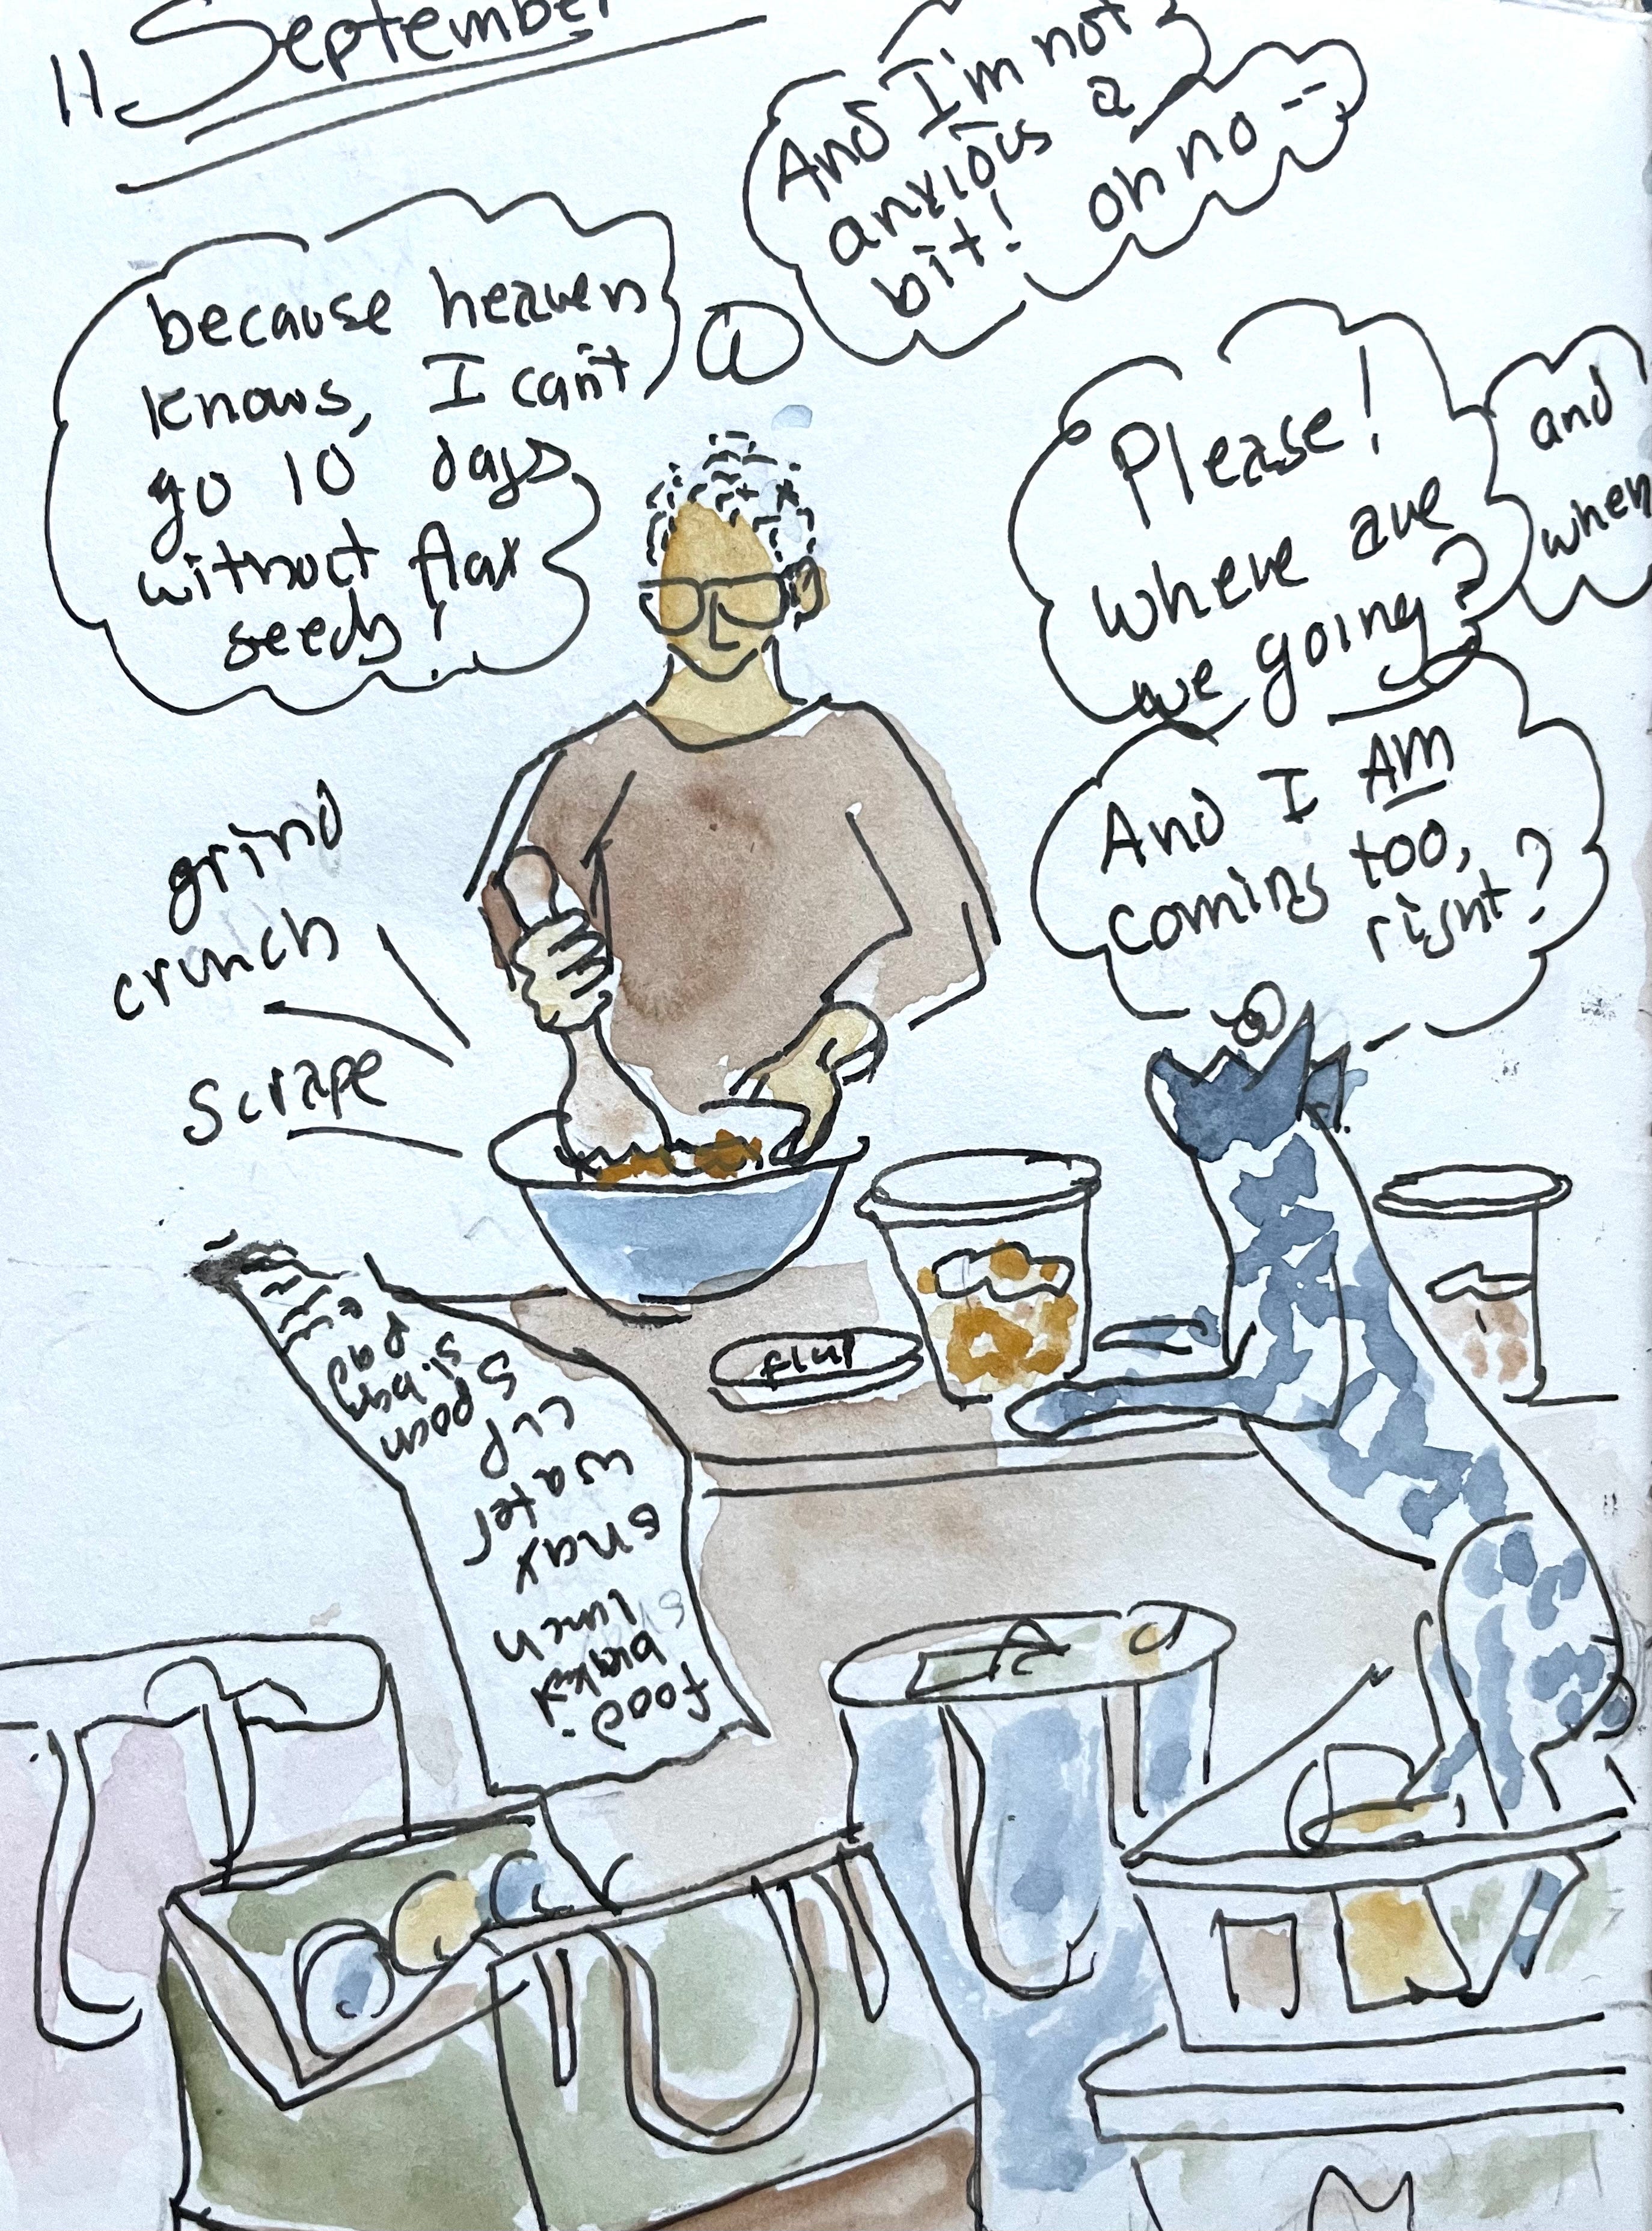 11 September
And I'm not
anxious a
bit! oh no --
because heaven
knows, I can't
go 10 days
without flax
seeds!
Please!
where are
we going?
and
when
And I AM
coming too,
right?
grind
crunch
scrape
food:
lunch
snax
water
cup
spoon